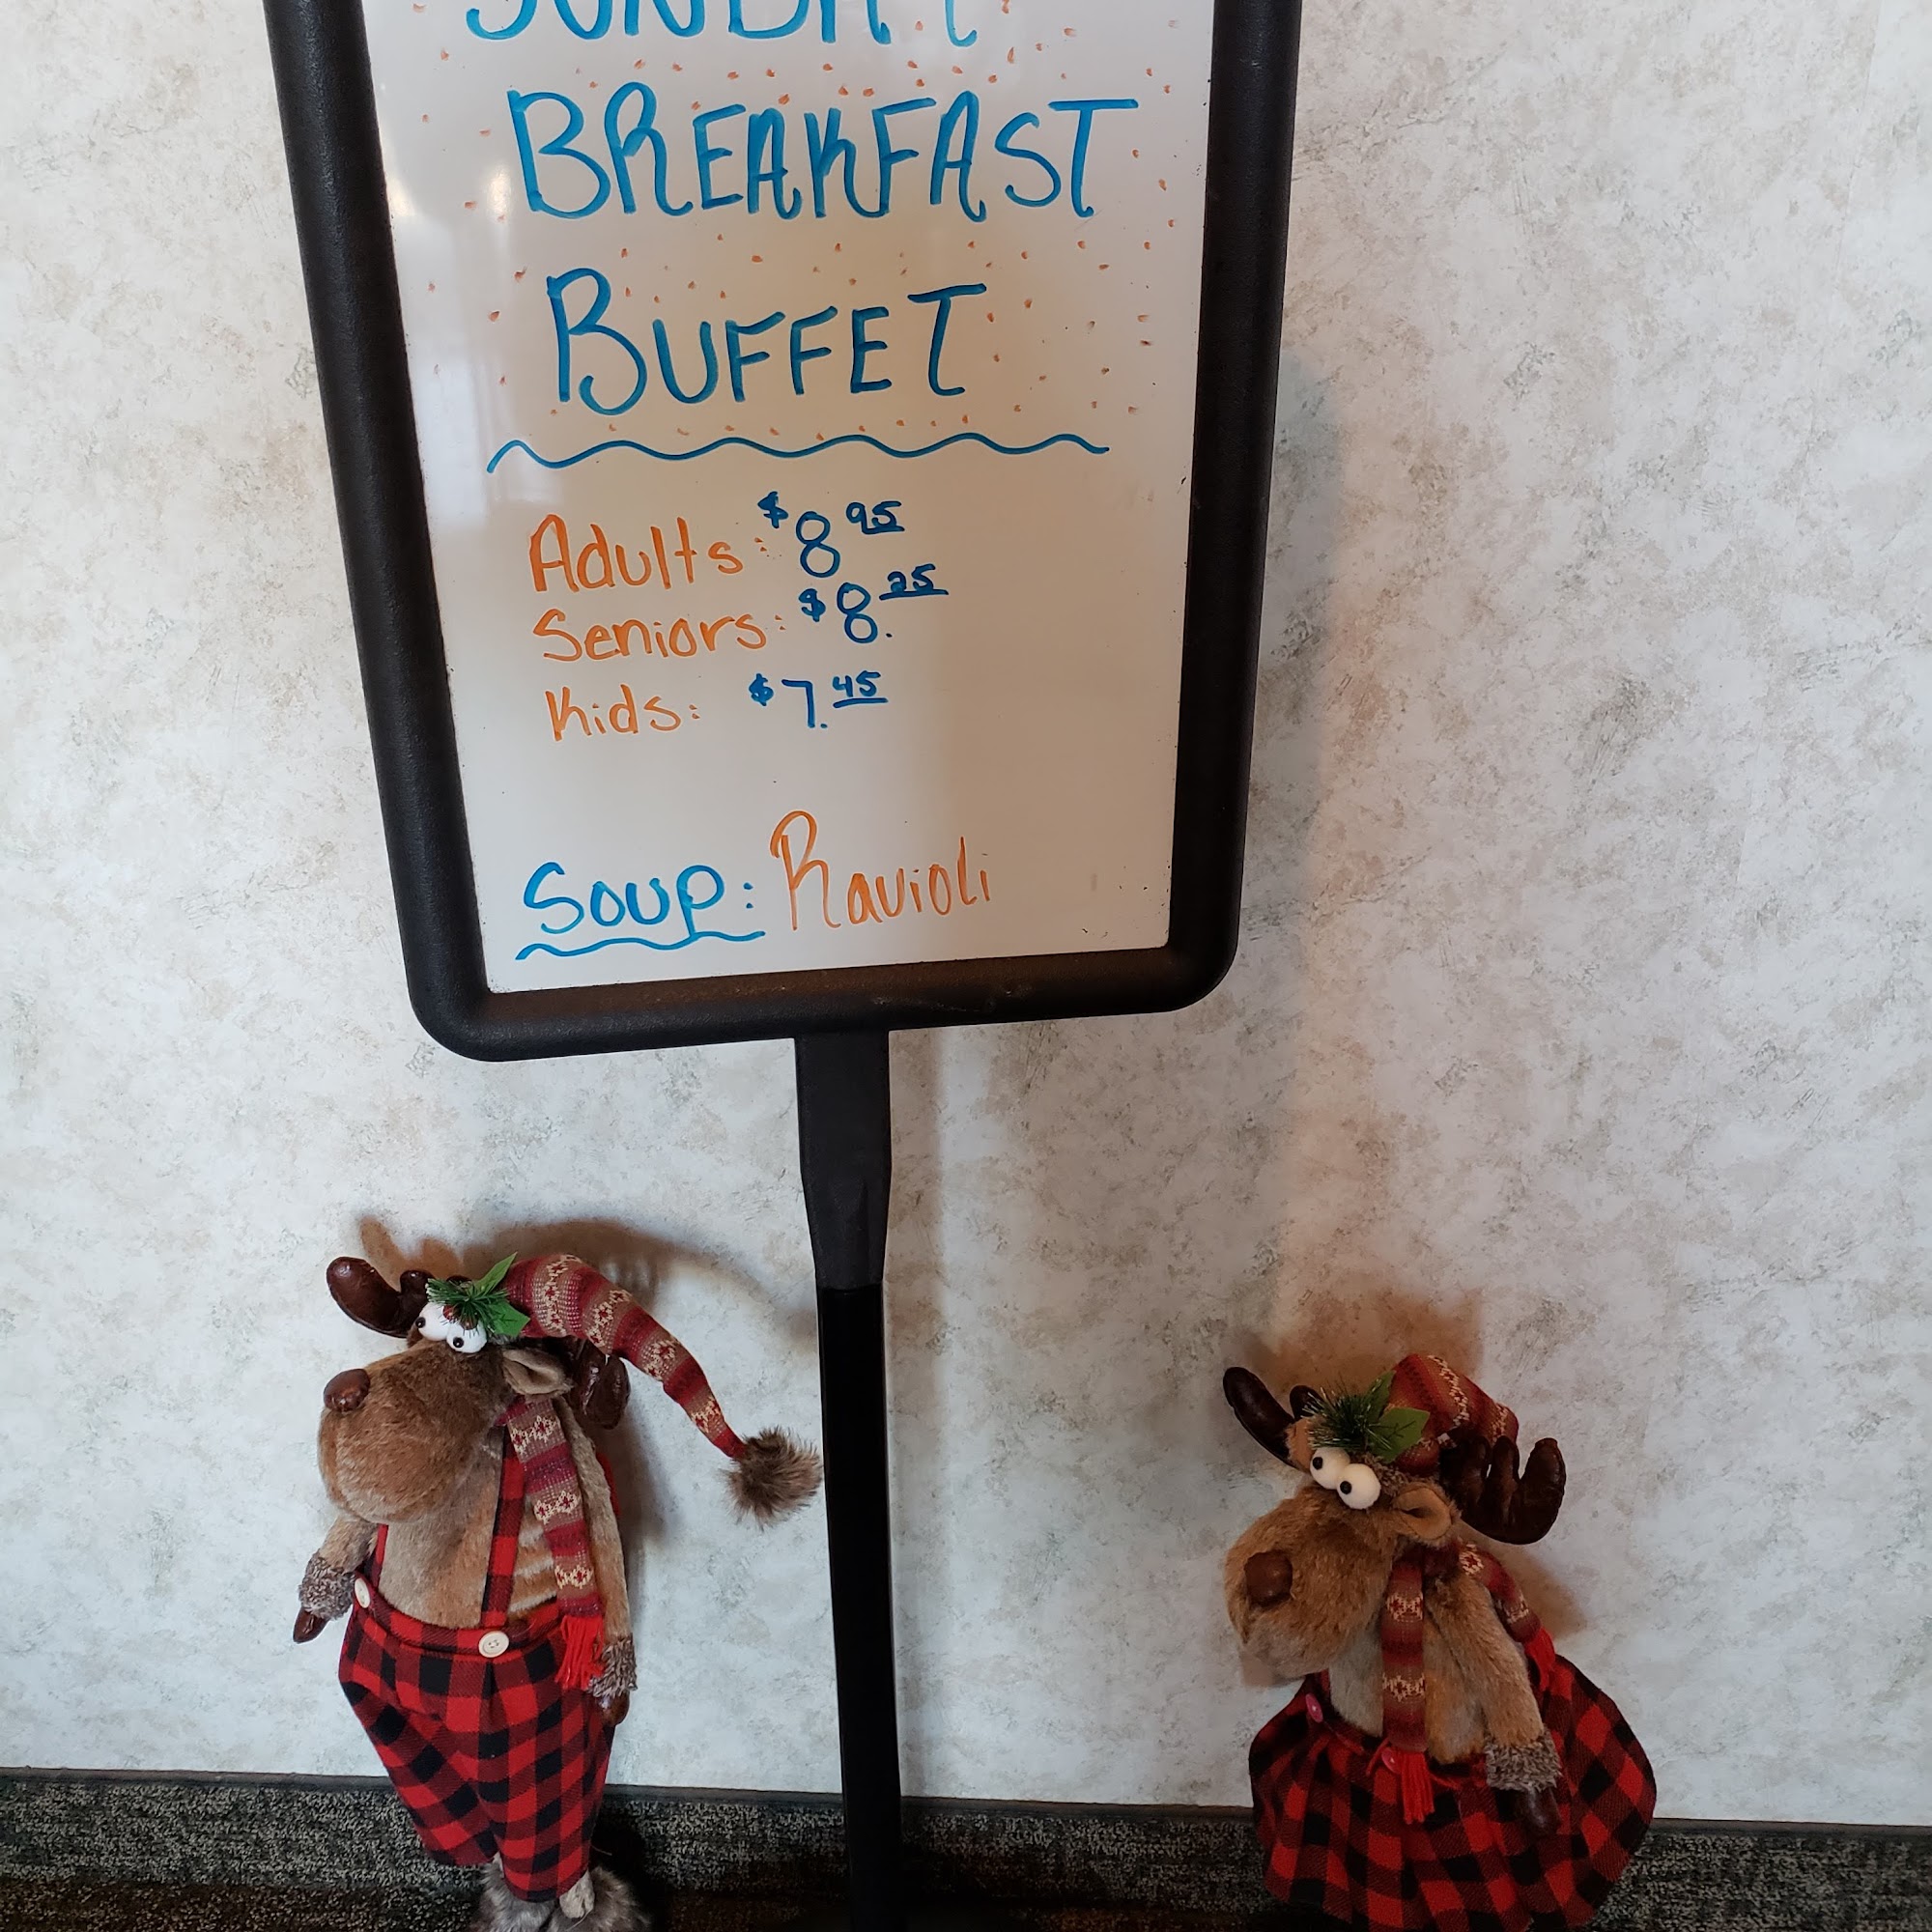 SUNDAY
BREAKFAST
BUFFET
Adults: $8 95
Seniors: $8. 25
Kids: $7. 45
Soup: Ravioli